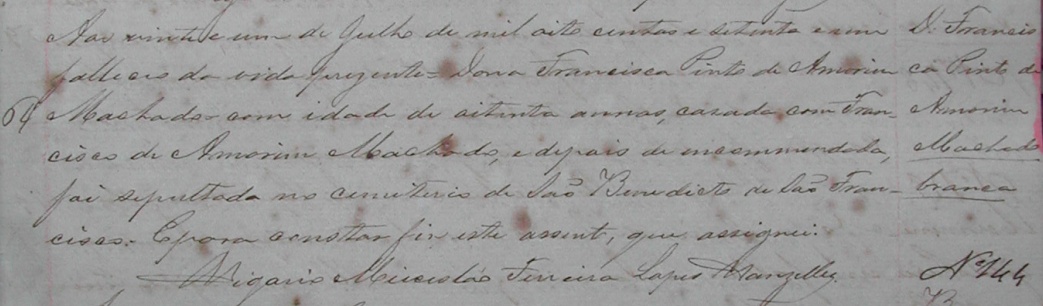 Aos vinte e um de Julho de mil oito centos e setenta e um
falleceo da vida prezente = Dona Francisca Pinto de Amorim
Machado com idade de oitenta annos, cazada com Fran-
cisco de Amorim Machado, e depois de encommendada,
foi sepultada no cemiterio de São Benedicto de São Fran-
cisco. E para constar fiz este assento, que assignei.
Vigario Miceslão Ferreira Lopes
D. Francis
ca Pinto de
Amorim
Machado
branca
64
Nº 144